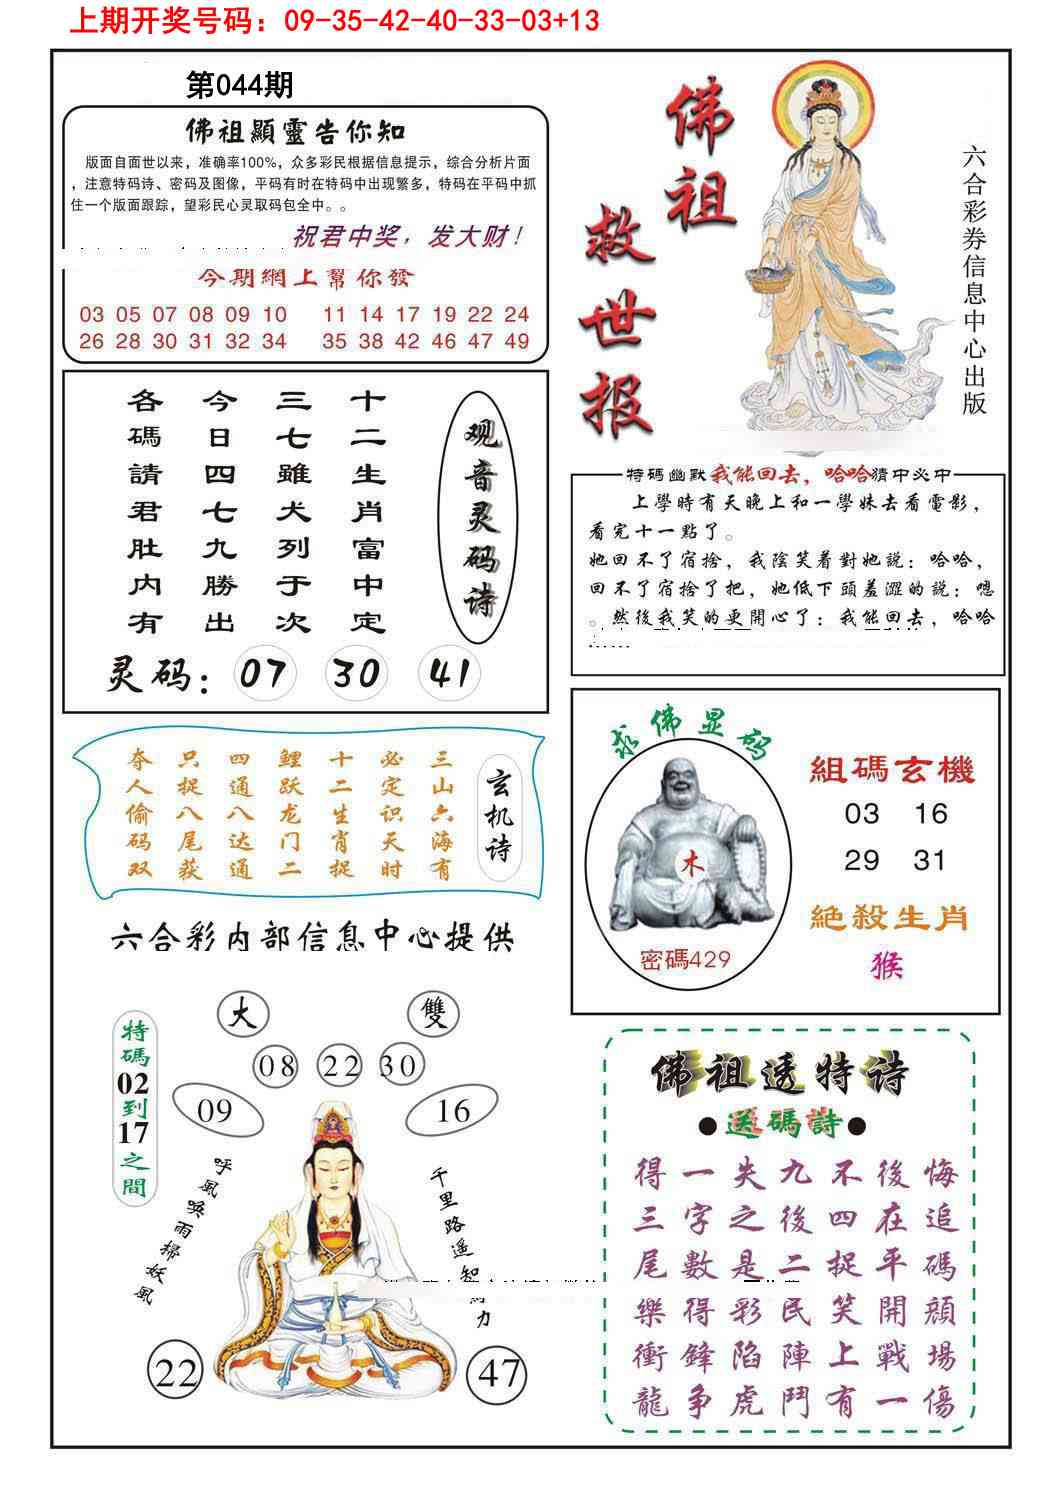 上期开奖号码：09-35-42-40-33-03+13
第044期
佛祖顯靈告你知
版面自面世以来，准确率100%，众多彩民根据信息提示，综合分析片面
，注意特码诗、密码及图像，平码有时在特码中出现繁多，特码在平码中抓
住一个版面跟踪，望彩民心灵取码包全中。。
祝君中奖，发大财！
今期網上幫你發
03 05 07 08 09 10 11 14 17 19 22 24
26 28 30 31 32 34 35 38 42 46 47 49
佛祖
救世报
六合彩券信息中心出版
观音灵码诗
十二生肖富中定
三七雖犬列于次
今日四七九勝出
各碼請君肚内有
灵码：07 30 41
特碼幽默我能回去，哈哈猜中必中
上學時有天晚上和一學妹去看電影，
看完十一點了。
她回不了宿捨，我陰笑着對她説：哈哈，
回不了宿捨了把，她低下頭羞澀的説：嗯
。然後我笑的更開心了：我能回去，哈哈
玄机诗
三山六海有
必定识天时
十二生肖捉
鲤跃龙门二
四通八达通
只捉八尾获
夺人偷码双
求佛显码
木
密碼429
組碼玄機
03 16
29 31
絕殺生肖
猴
六合彩内部信息中心提供
大 雙
08 22 30
09 16
特碼02到17之間
呼風喚雨掃妖風
千里路遥知馬力
22 47
佛祖透特诗
●送碼詩●
得一失九不後悔
三字之後四在追
尾數是二捉平碼
樂得彩民笑開顔
衝鋒陷陣上戰場
龍争虎鬥有一傷